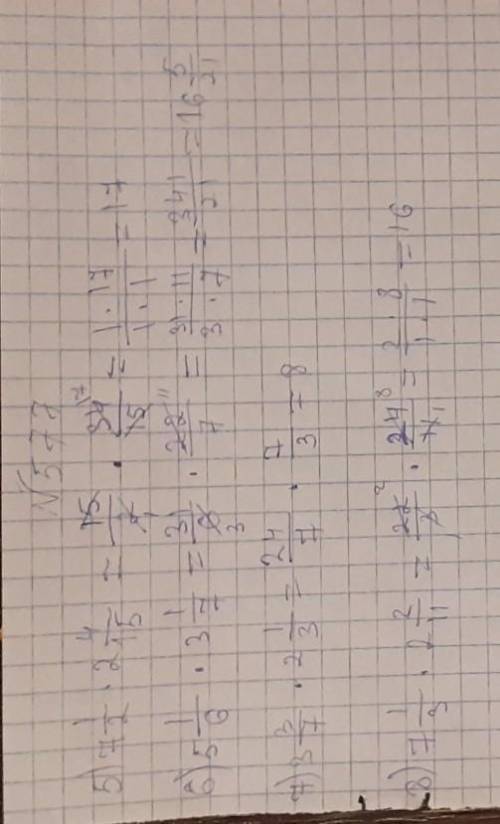 N 577
5) 7 1/2 · 2 4/15 = 15/2 · 34/15 = 1·17/1·1 = 17
6) 5 1/6 · 3 1/7 = 31/6 · 22/7 = 31·11/3·7 = 341/21 = 16 5/21
7) 3 3/7 · 2 1/3 = 24/7 · 7/3 = 8
8) 7 1/3 · 2 2/11 = 22/3 · 24/11 = 2·8/1·1 = 16